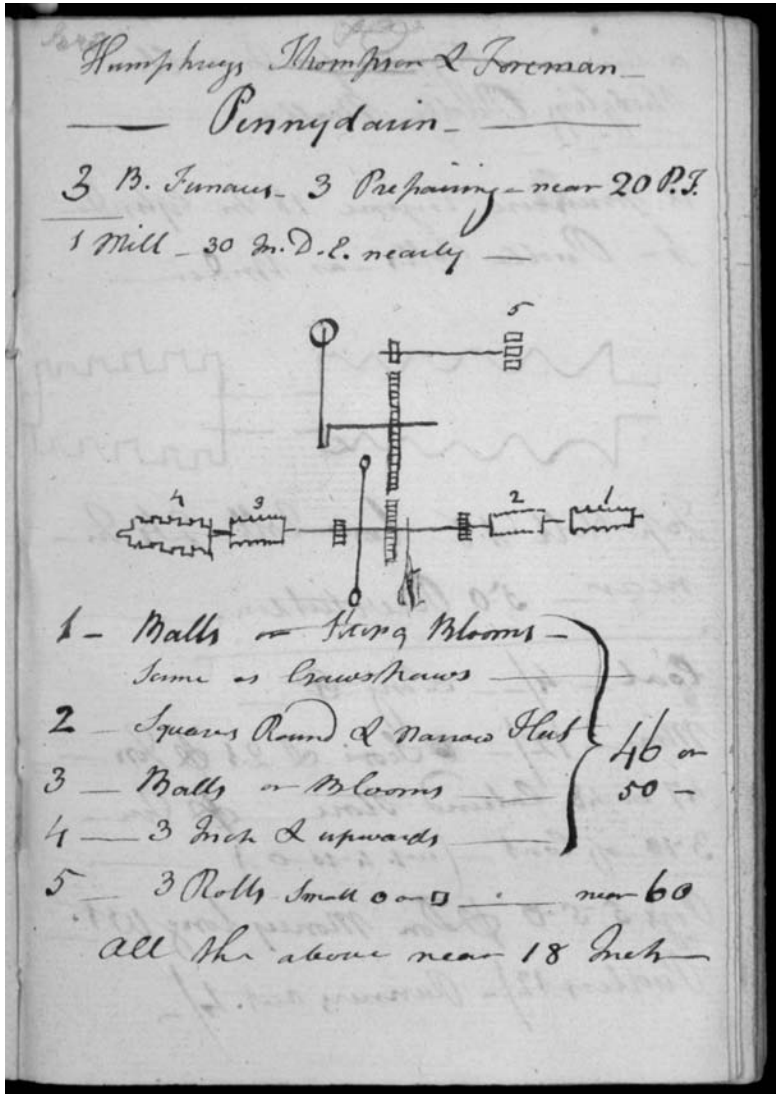 Humphreys Thompson & Foreman
Pennydarin
3 B. Furnaces - 3 Prepairing - near 20 P.F.
1 Mill - 30 In. D.E. nearly
5
4 3 2 1
1 - Balls or Blooms -
Same as Crawshaws
2 - Squares Round & narrow Flat
46 or
3 - Balls or Blooms
50 -
4 - 3 Inch & upwards
5 3 Rolls small o or □ - near 60
All the above near 18 Inch